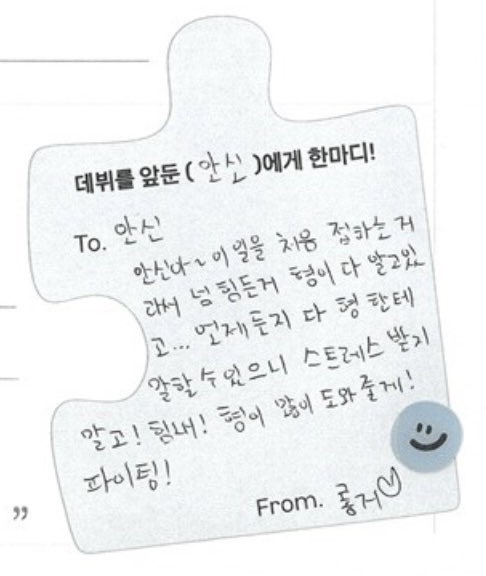 데뷔를 앞둔 ( 안신 )에게 한마디!
To. 안신
안신아~ 이 일을 처음 접하는거
라서 넘 힘든거 형이 다 알고있
고... 언제든지 다 형 한테
말할 수 있으니 스트레스 받지
말고! 힘내! 형이 많이 도와줄게!
파이팅!
From. 롱거♡
”